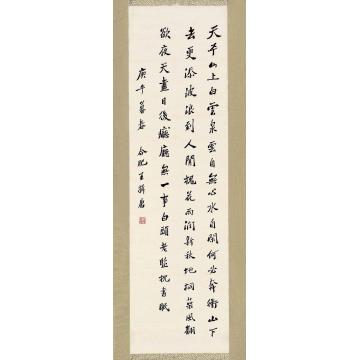 天平山上白雲泉雲自無心水自閑何必奔衝山下
去更添波浪到人間槐花雨潤新秋地桐葉風翻
欲夜天盡日後廳無一事白頭老監枕書眠
庚午暮春 合肥王揖唐